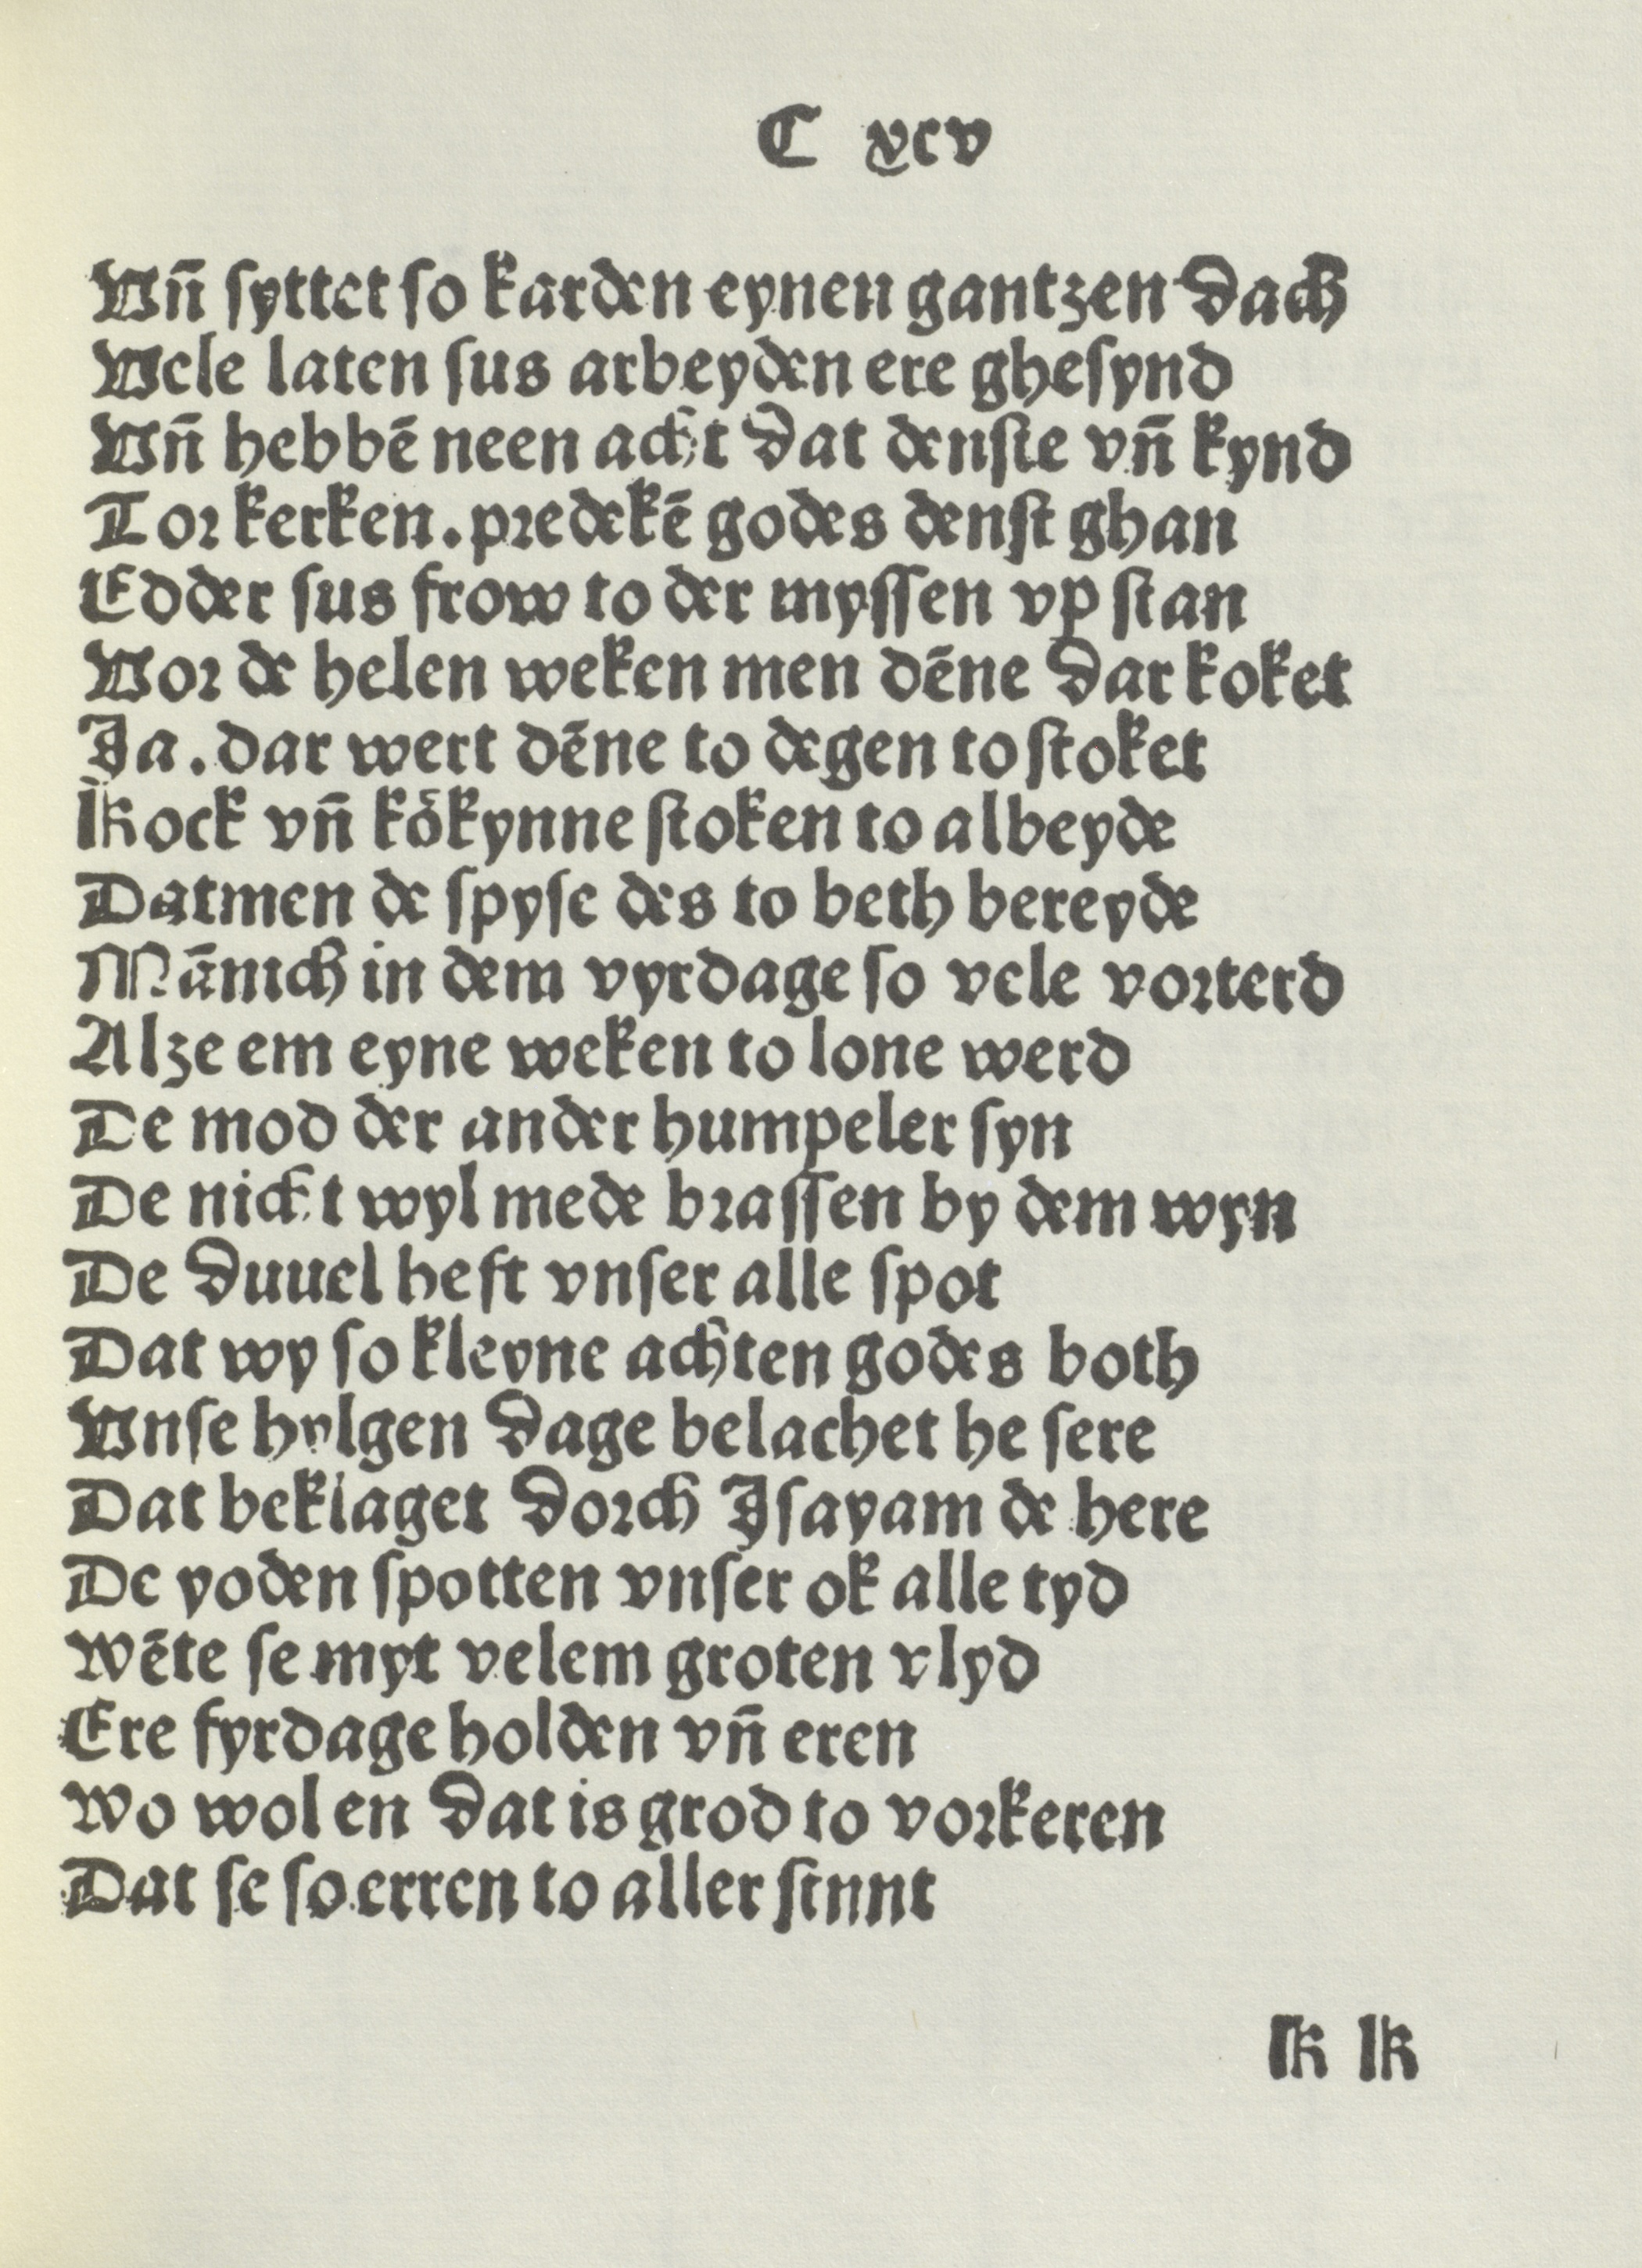 C xcv
Vñ syttet so karden eynen gantzen dach
Vele laten sus arbeyden ere ghesynd
Vñ hebbē neen acht dat denste vñ kynd
Tor kerken. predekē godes denst ghan
Edder sus frow to der myssen vp stan
Vor de helen weken men dēne dar koket
Ja. dar wert dēne to degen to stoket
Kock vñ kȫkynne stoken to albeyde
Datmen de spyse des to beth bereyde
Mānich in dem vyrdage so vele vorterd
Alze em eyne weken to lone werd
De mod der ander humpeler syn
De nicht wyl mede brassen by dem wyn
De duuel heft vnser alle spot
Dat wy so kleyne achten godes both
Vnse hylgen dage belachet he sere
Dat beklaget dorch Jsayam de here
De yoden spotten vnser ok alle tyd
Wēte se myt velem groten vlyd
Ere fyrdage holden vñ eren
Wo wol en dat is grod to vorkeren
Dat se so erren to aller stunt
K K